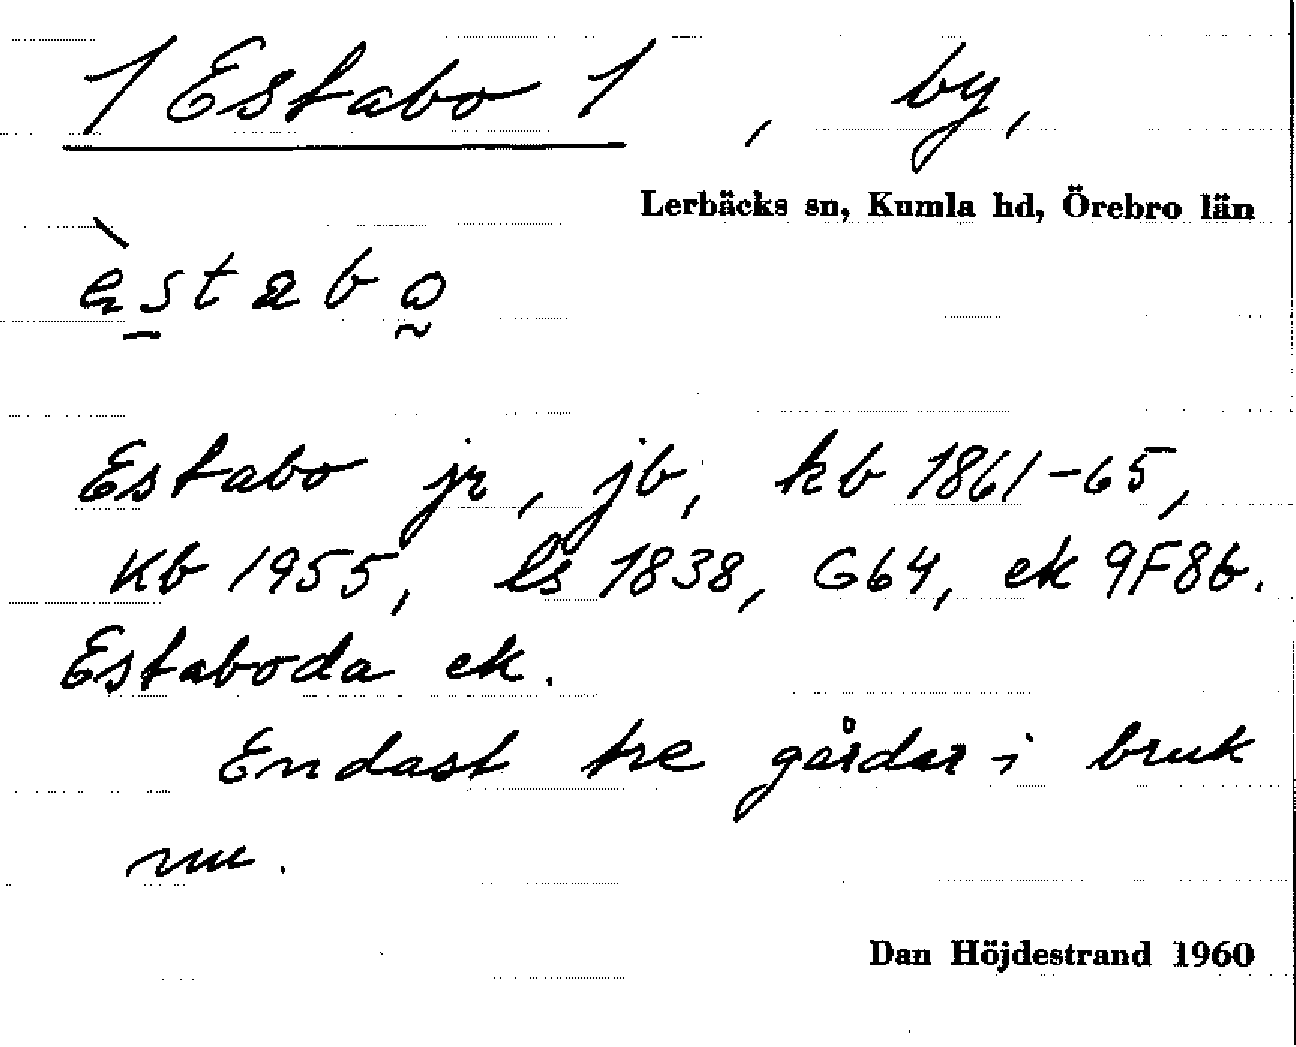 1 Estabo 1, by,
Lerbäcks sn, Kumla hd, Örebro län
èstabo
Estabo jr, jb, kb 1861-65,
Kb 1955, ls 1838, G64, ek 9F8b.
Estaboda ek.
Endast tre gårdar i bruk
nu.
Dan Höjdestrand 1960